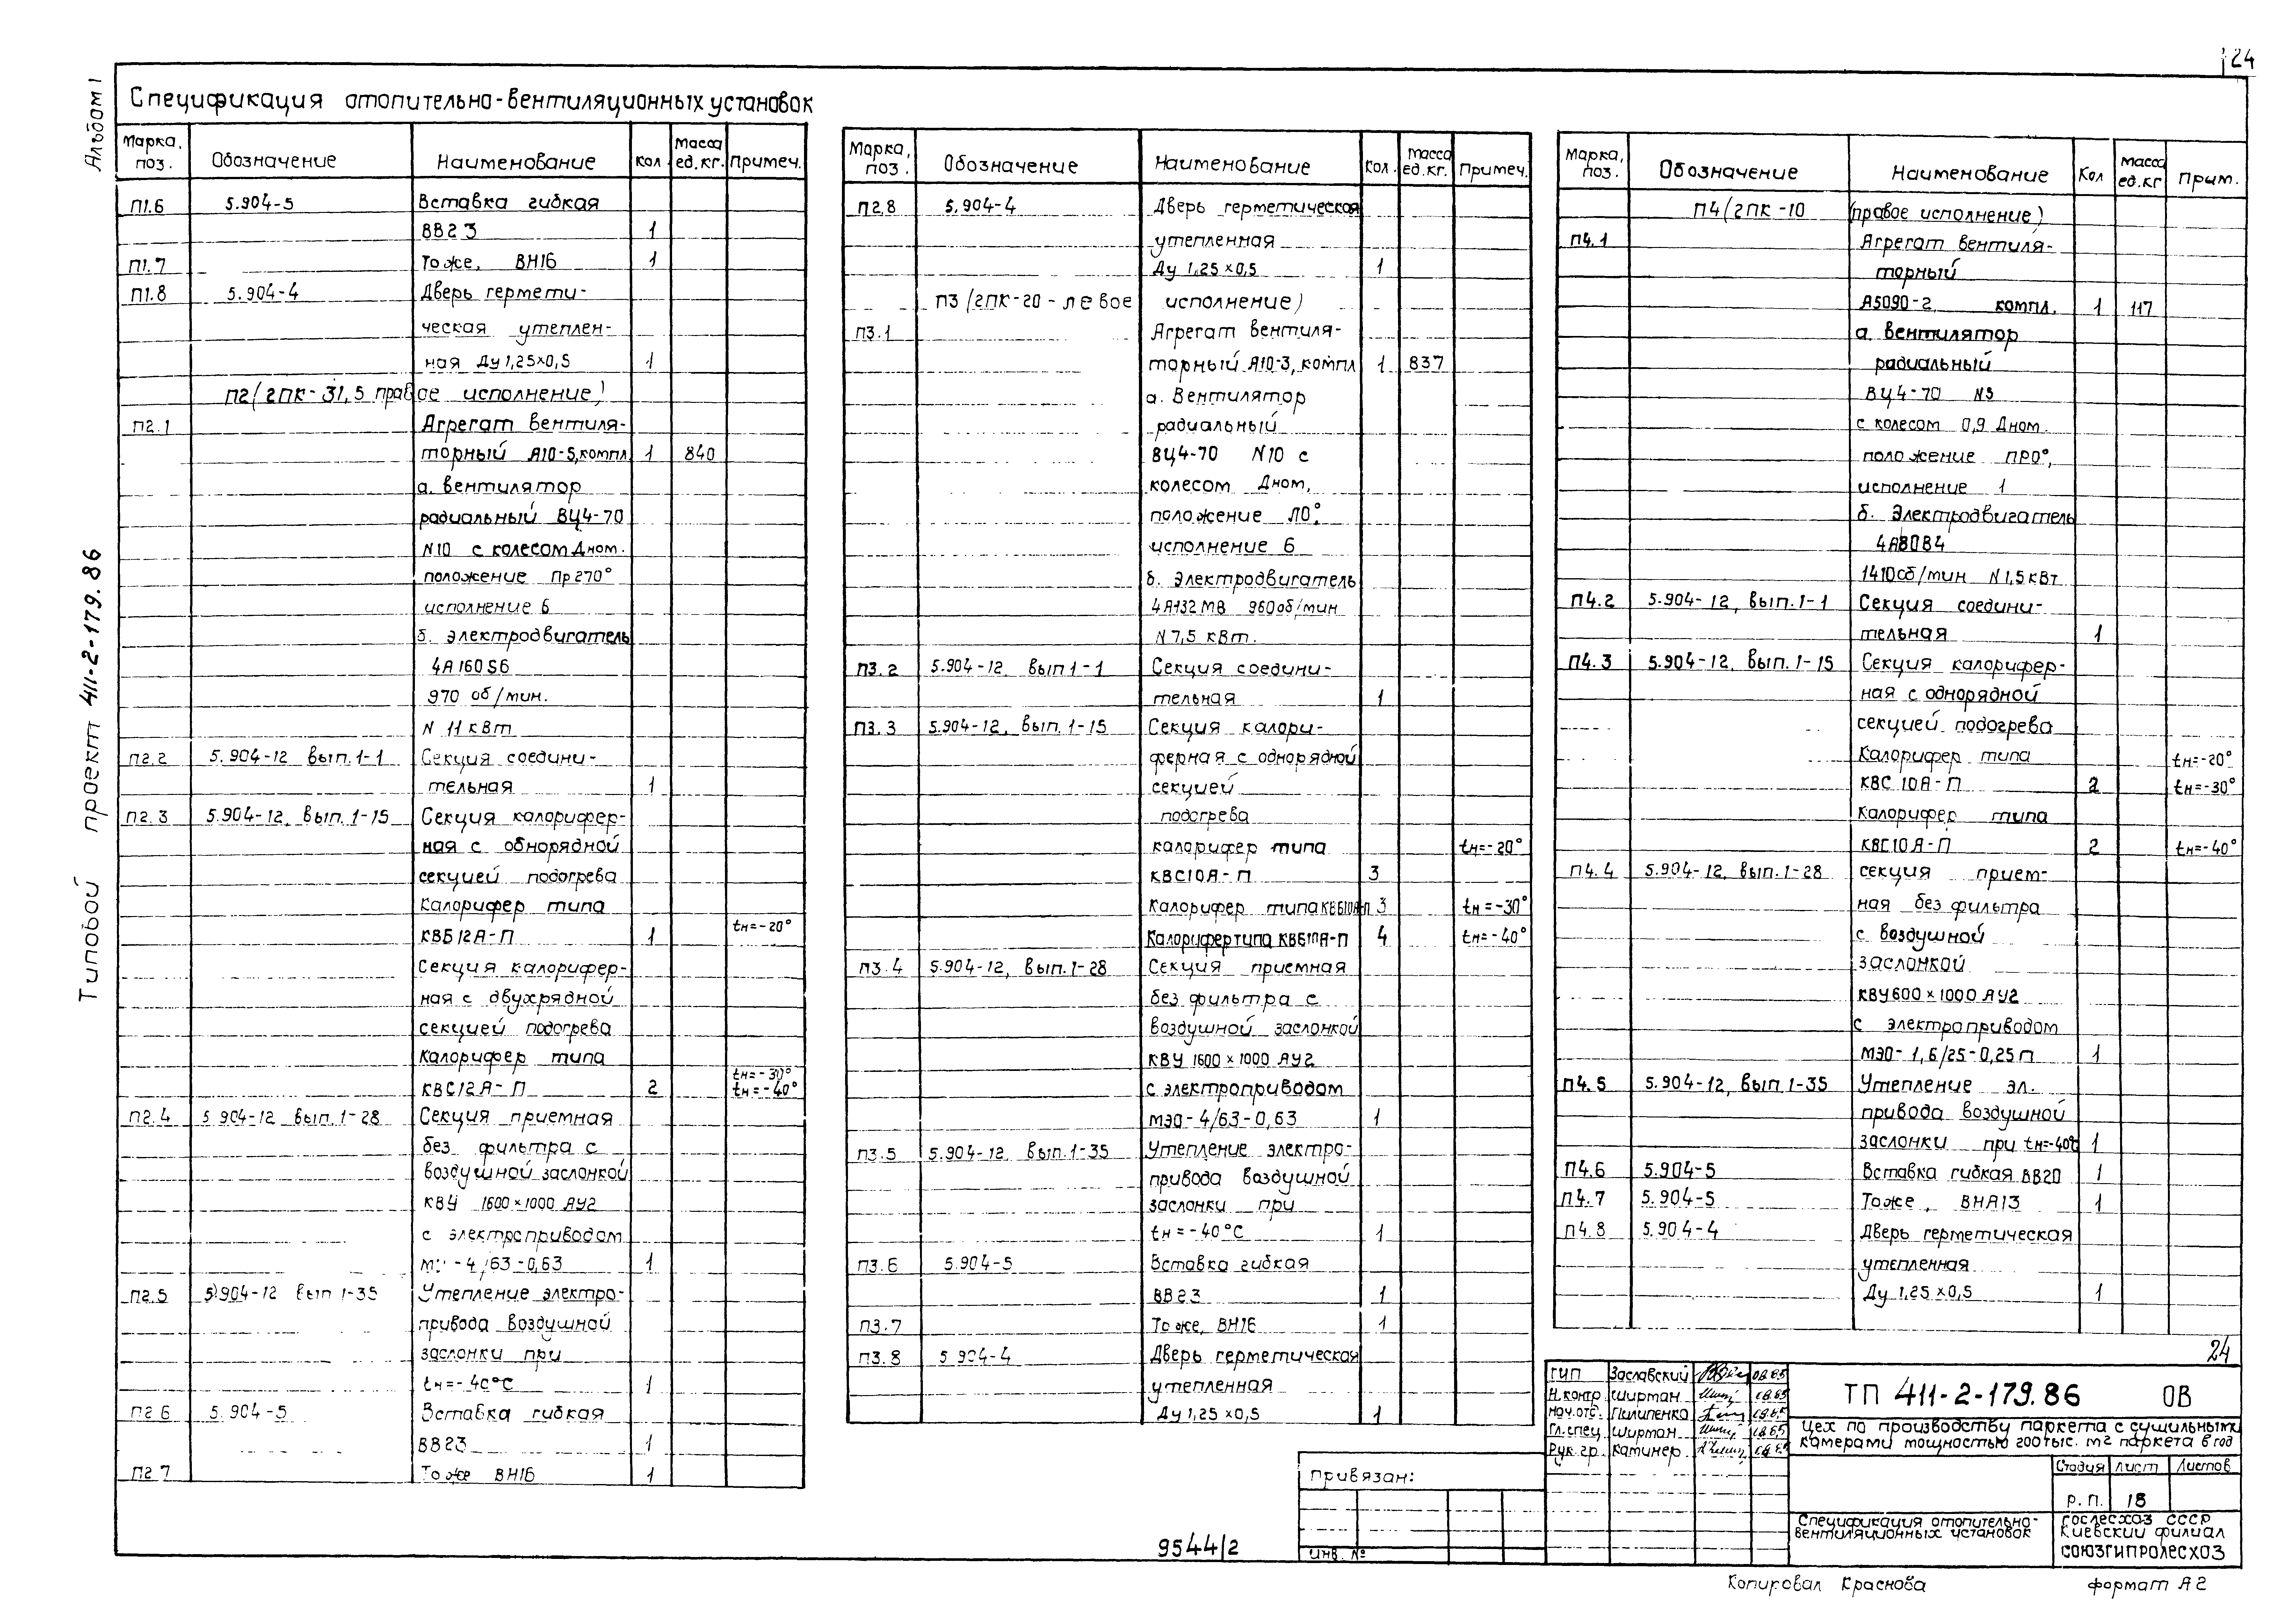 24
Альбом 1
Типовой проект 411-2-179.86
Спецификация отопительно-вентиляционных установок
Марка, поз. Обозначение Наименование кол. Масса ед.кг. Примеч.
П1.6 5.904-5 Вставка гибкая
ВВ23 1
П1.7 То же, ВН16 1
П1.8 5.904-4 Дверь гермети-
ческая утеплен-
ная Ду 1,25×0,5 1
П2 (2ПК-31,5 правое исполнение)
П2.1 Агрегат вентиля-
торный А10-5, компл 1 840
а. вентилятор
радиальный ВЦ4-70
N10 с колесом Dном.
положение Пр270°
исполнение 6
б. электродвигатель
4А160S6
970 об/мин.
N 11 кВт
П2.2 5.904-12 вып.1-1 Секция соедини-
тельная 1
П2.3 5.904-12, вып.1-15 Секция калорифер-
ная с однорядной
секцией подогрева
Калорифер типа
КВБ12А-П 1 tн=-20°
Секция калорифер-
ная с двухрядной
секцией подогрева
Калорифер типа
tн=-30°
КВС12А-П 2 tн=-40°
П2.4 5.904-12 вып.1-28 Секция приемная
без фильтра с
воздушной заслонкой
КВУ 1600×1000 АУ2
с электроприводом
-4/63-0,63 1
П2.5 5.904-12 вып 1-35 Утепление электро-
привода воздушной
заслонки при
tн=-40°С 1
П2 6 5.904-5 Вставка гибкая
ВВ23 1
П2 7 То же ВН16 1
Марка, поз. Обозначение Наименование Кол. Масса ед.кг. Примеч.
П2.8 5.904-4 Дверь герметическая
утепленная
Ду 1,25×0,5 1
П3 (2ПК-20-левое исполнение)
П3.1 Агрегат вентиля-
торный А10-3, компл 1 837
а. Вентилятор
радиальный
ВЦ4-70 N10 с
колесом Dном,
положение Л0°,
исполнение 6
б. электродвигатель
4А132М8 960 об/мин
N 7,5 кВт.
П3.2 5.904-12 вып 1-1 Секция соедини-
тельная 1
П3.3 5.904-12, вып.1-15 Секция калори-
ферная с однорядной
секцией
подогрева
калорифер типа tн=-20°
КВС10А-П 3
Калорифер типа КВБ10А-П 3 tн=-30°
Калорифер типа КВБ10А-П 4 tн=-40°
П3.4 5.904-12, вып.1-28 Секция приемная
без фильтра с
воздушной заслонкой
КВУ 1600×1000 АУ2
с электроприводом
МЭО-4/63-0,63 1
П3.5 5.904-12 вып.1-35 Утепление электро-
привода воздушной
заслонки при
tн=-40°С 1
П3.6 5.904-5 Вставка гибкая
ВВ23 1
П3.7 То же, ВН16 1
П3.8 5 904-4 Дверь герметическая
утепленная
Ду 1,25×0,5 1
Марка, поз. Обозначение Наименование Кол Масса ед.кг Прим.
П4 (2ПК-10 (правое исполнение)
П4.1 Агрегат вентиля-
торный
А5090-2 компл. 1 117
а. вентилятор
радиальный
ВЦ4-70 N5
с колесом 0,9 Dном.
положение ПР0°,
исполнение 1
б. Электродвигатель
4А80В4
1410 об/мин N1,5 кВт
П4.2 5.904-12, вып.1-1 Секция соедини-
тельная 1
П4.3 5.904-12, вып.1-15 Секция калорифер-
ная с однорядной
секцией подогрева
Калорифер типа tн=-20°
КВС 10А-П 2 tн=-30°
Калорифер типа
КВС10А-П 2 tн=-40°
П4.4 5.904-12, вып.1-28 секция прием-
ная без фильтра
с воздушной
заслонкой
КВУ600×1000 АУ2
с электроприводом
МЭО-1,6/25-0,25П 1
П4.5 5.904-12, вып.1-35 Утепление эл.
привода воздушной
заслонки при tн=-40°С 1
П4.6 5.904-5 Вставка гибкая ВВ20 1
П4.7 5.904-5 То же, ВНА13 1
П4.8 5.904-4 Дверь герметическая
утепленная
Ду 1,25×0,5 1
24
ГИП Заславский
Н.контр Ширман
Нач.отд. Пилипенко
Гл.спец Ширман
Рук.гр. Катинер
ТП 411-2-179.86 ОВ
Цех по производству паркета с сушильными
камерами мощностью 200тыс. м2 паркета в год
Стадия Лист Листов
Р.П. 18
Спецификация отопительно-
вентиляционных установок
Гослесхоз СССР
Киевский филиал
СОЮЗГИПРОЛЕСХОЗ
Привязан:
Инв. №
9544/2
Копировал Краснова
формат А2